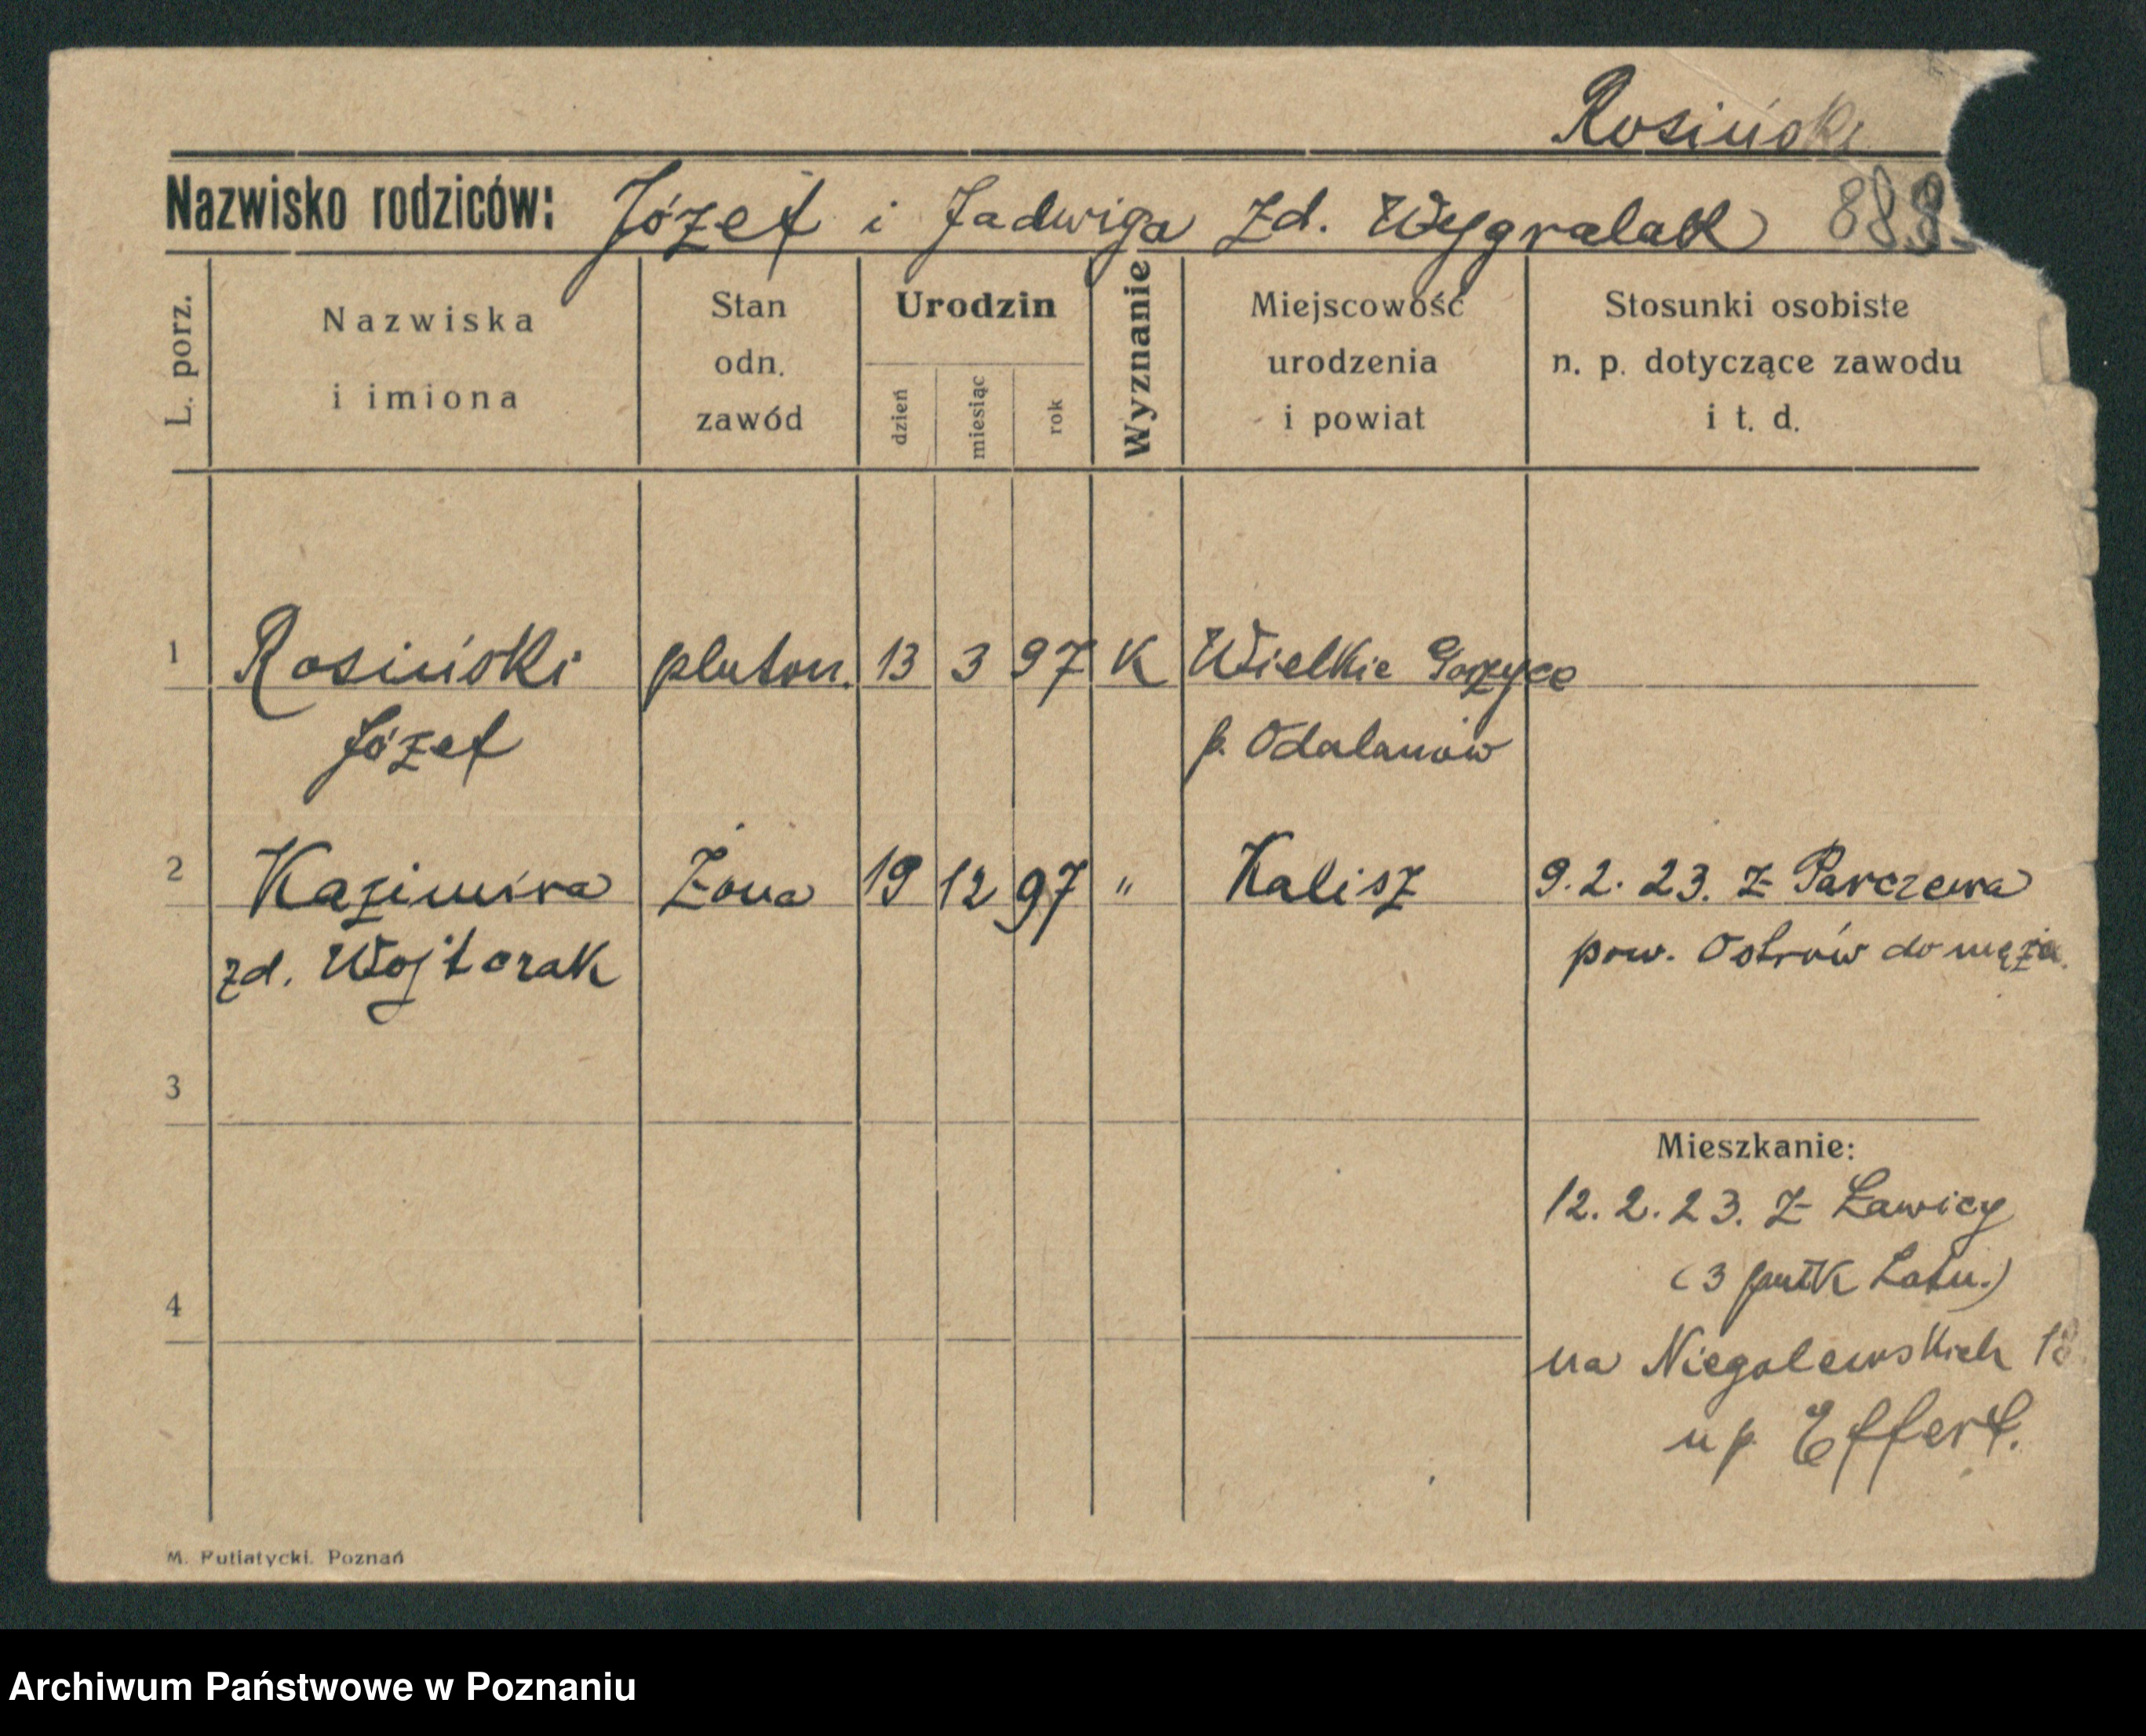 Rosiński
Nazwisko rodziców: Józef i Jadwiga zd. Wygralak 888
L. porz.
Nazwiska
i imiona
Stan
odn.
zawód
Urodzin
dzień
miesiąc
rok
Wyznanie
Miejscowość
urodzenia
i powiat
Stosunki osobiste
n. p. dotyczące zawodu
i t. d.
1 Rosiński pluton. 13 3 97 K Wielkie Gorzyce
Józef p. Odalanów
2 Kazimira Żona 19 12 97 " Kalisz 9.2.23. z Parczewa
zd. Wojtczak pow. Ostrów do męża.
3
Mieszkanie:
12.2.23. z Ławicy
(3 Lotn.)
4
na Niegolewskich 18
u p. Effert.
M. Putiatycki. Poznań
Archiwum Państwowe w Poznaniu